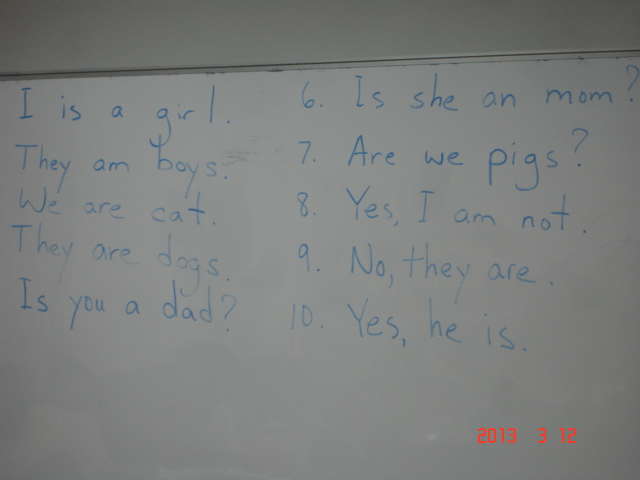 I is a girl.
They am boys.
We are cat.
They are dogs.
Is you a dad?
6. Is she an mom?
7. Are we pigs?
8. Yes, I am not.
9. No, they are.
10. Yes, he is.
2013 3 12